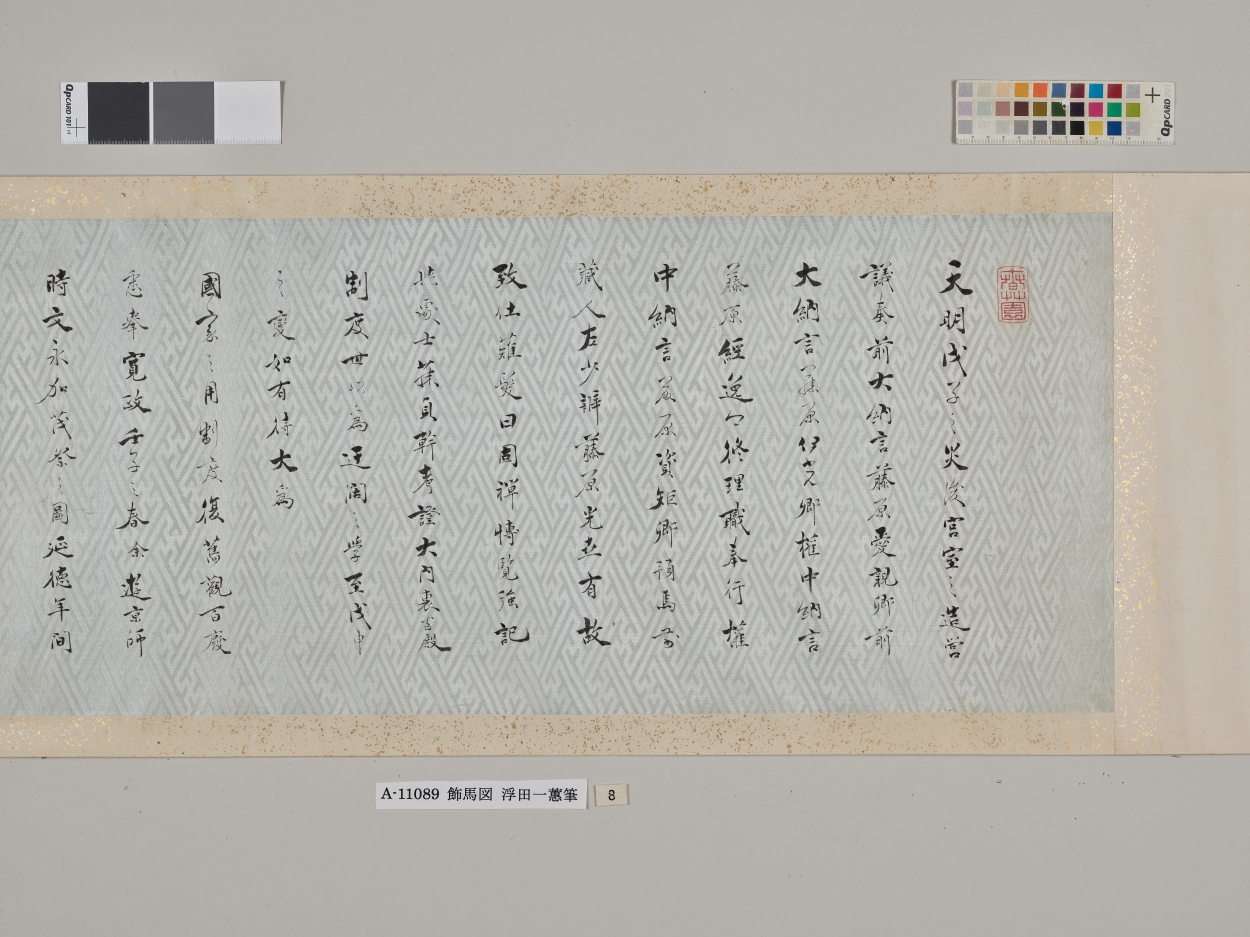 天明戊子之災後宮室之造営
議奏前大納言藤原愛親卿前
大納言藤原伊光卿権中納言
藤原経逸卿修理職奉行権
中納言藤原資矩卿預焉前
蔵人左少辨藤原光世有故
致仕薙髪曰固禅博覧強記
處士藤貞幹考證大内裏宮殿
制度世以為迂闊之学至戊申
之変如有待大為
國家之用制度復舊觀百廢
悉挙寛政壬子之春余遊京師
時文永加茂祭之圖延徳年间
A-11089 飾馬図 浮田一蕙筆
8
QPCARD 101
QPCARD